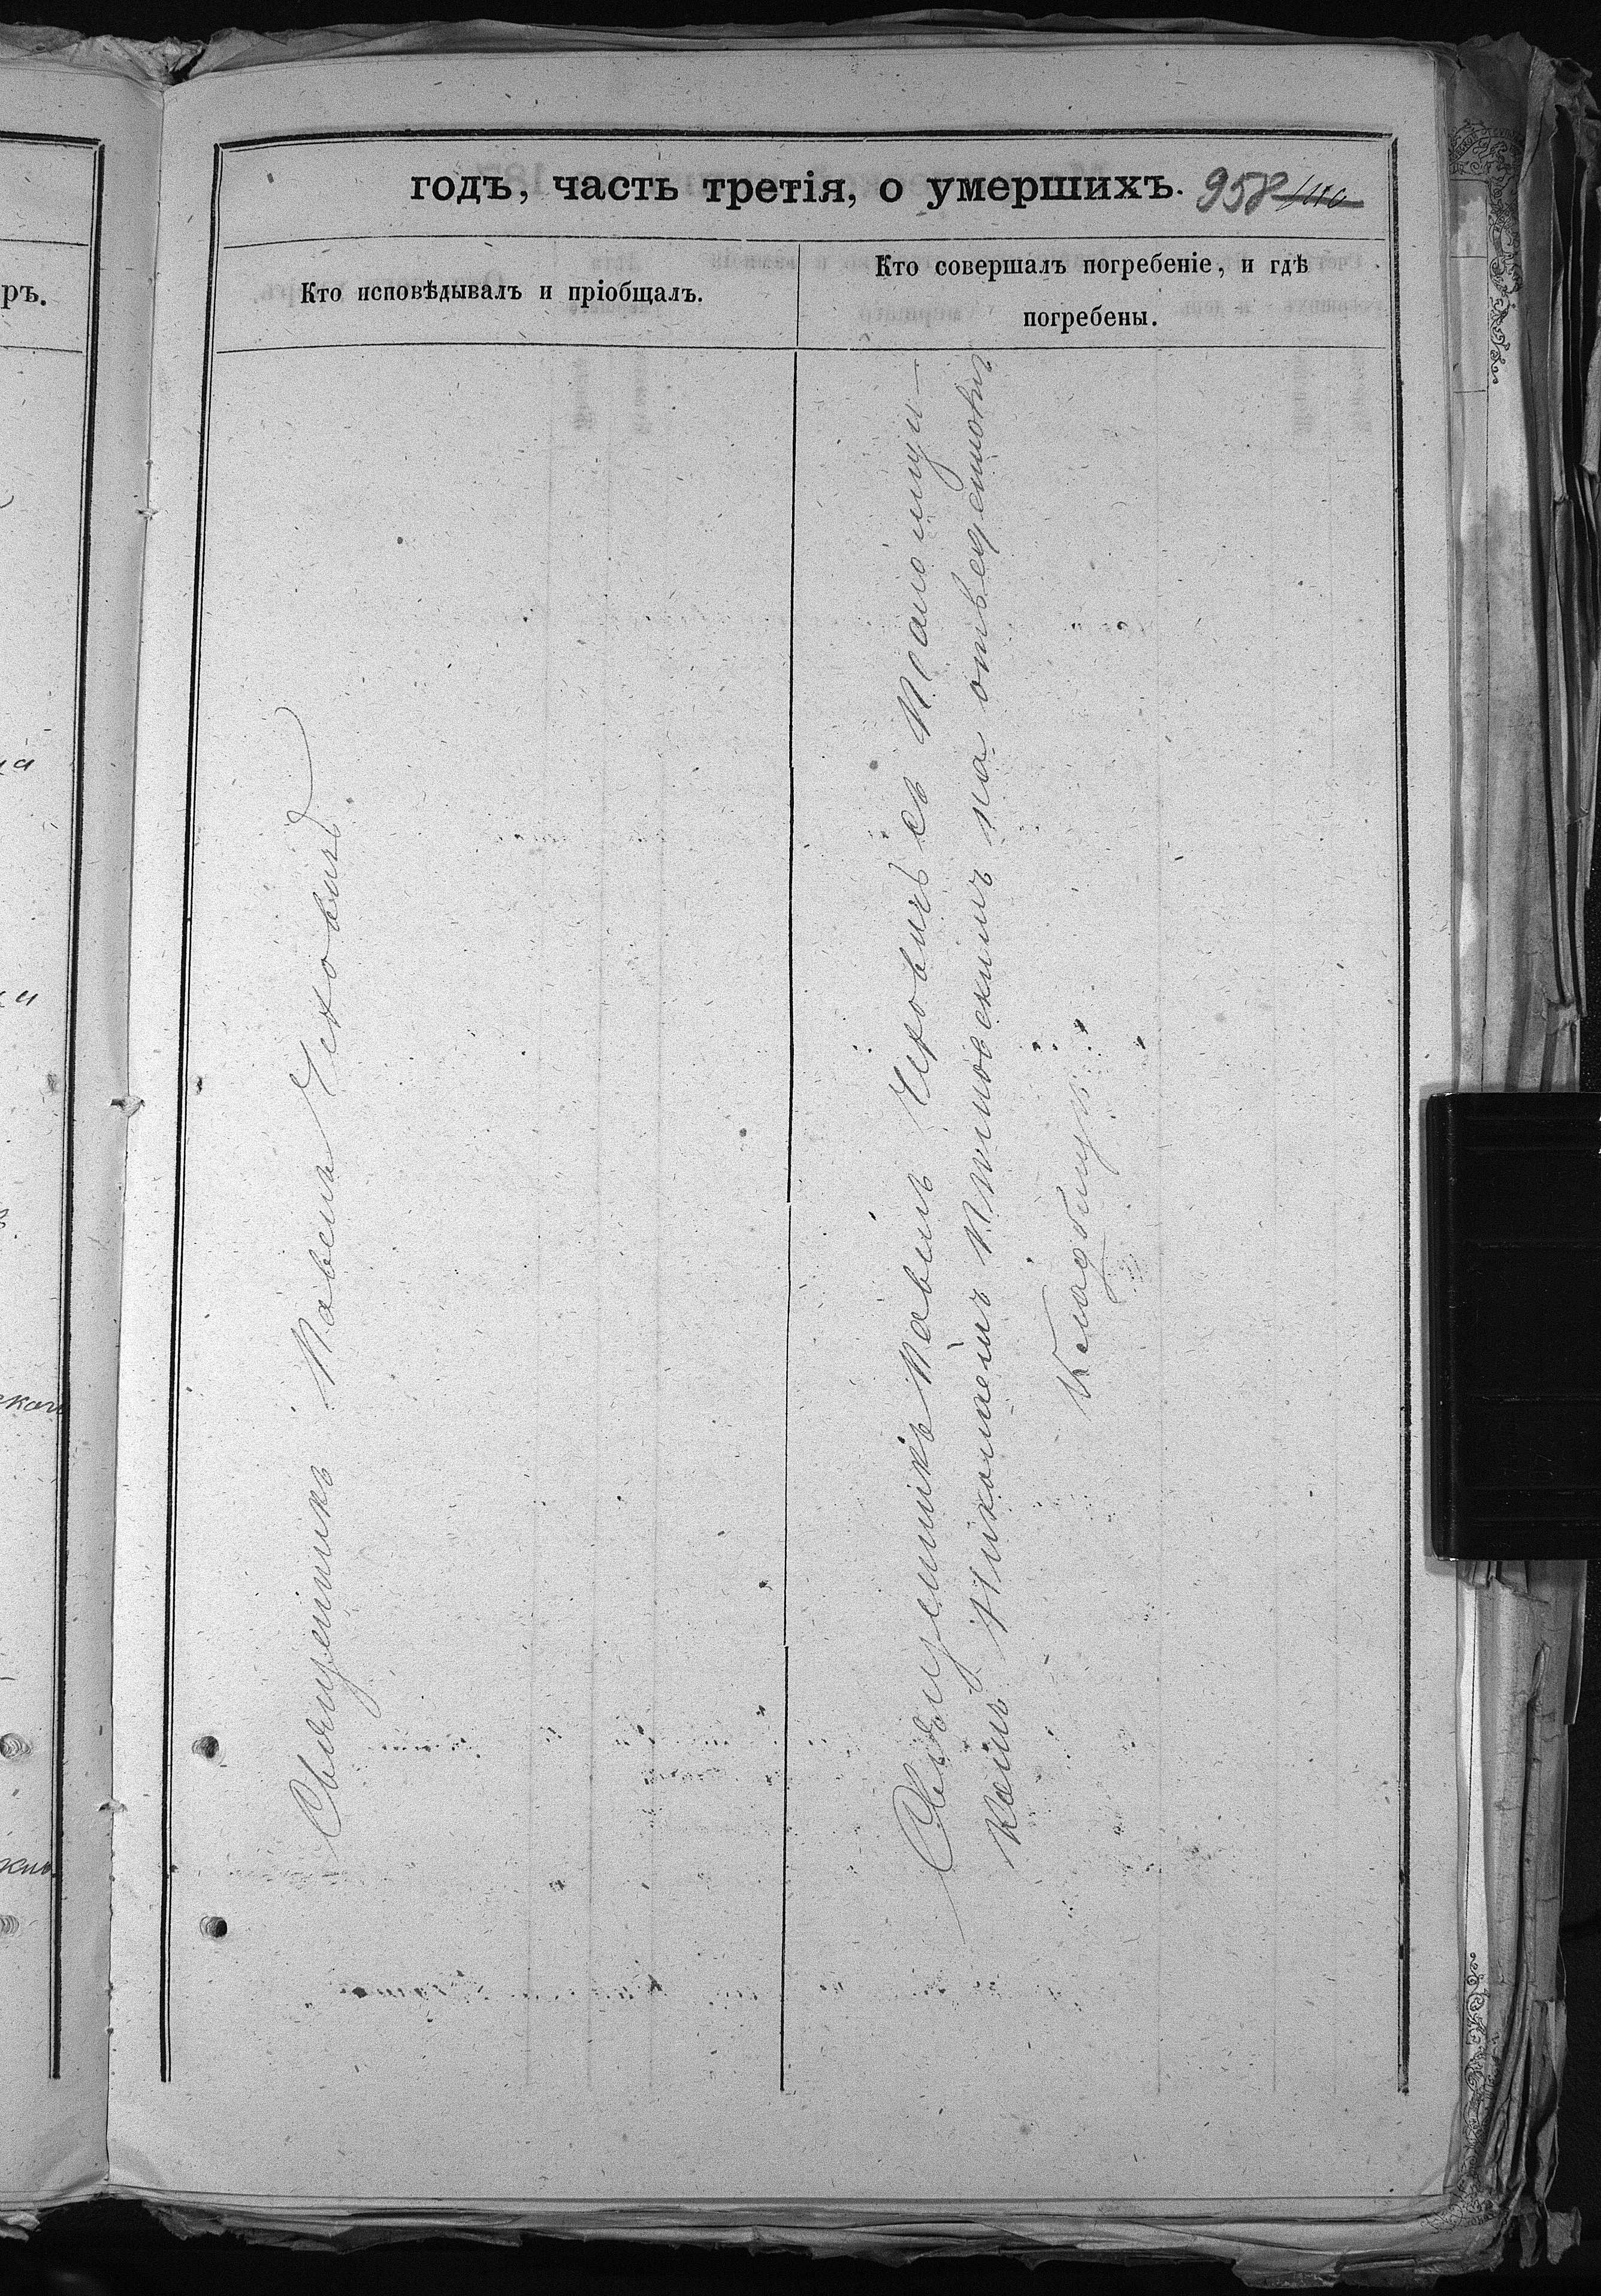 годъ, часть третія, о умершихъ. 958
Кто исповѣдывалъ и пріобщалъ.
Кто совершалъ погребеніе, и гдѣ
погребены.
Священникъ Павелъ Чеховичъ
Священникъ Павелъ Чеховичъ съ Псаломщи-
комъ Николаемъ на отведенномъ
Кладбищѣ.
ръ.